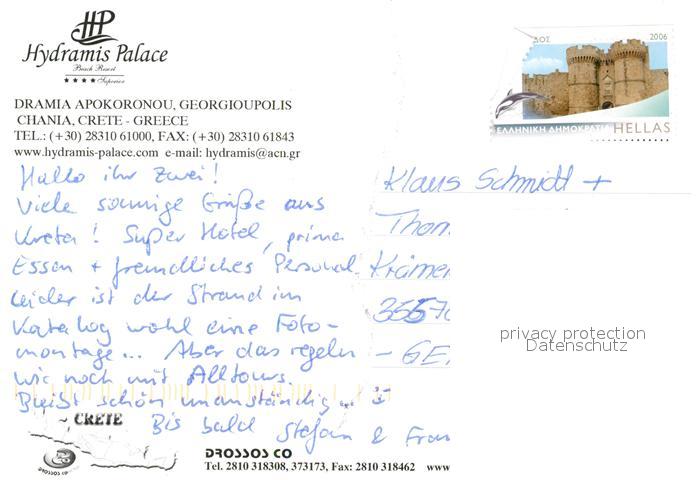 HP
Hydramis Palace
Beach Resort
Superior
DRAMIA APOKORONOU, GEORGIOUPOLIS
CHANIA, CRETE - GREECE
TEL.: (+30) 28310 61000, FAX: (+30) 28310 61843
www.hydramis-palace.com e-mail: hydramis@acn.gr
ΔΟΣ 2006
ΕΛΛΗΝΙΚΗ ΔΗΜΟΚΡΑΤΙΑ HELLAS
Hallo ihr zwei!
Viele sonnige Grüße aus
Kreta! Super Hotel, prima
Essen + freundliches Personal.
Leider ist der Strand im
Katalog wohl eine Foto-
montage... Aber das regeln
wir noch mit Alltours.
Bleibt schön unanständig...
Bis bald Stefan & Fran
Klaus Schmidt +
Thom
Krämer
3557
- GE
privacy protection
Datenschutz
CRETE
DROSSOS CO
DROSSOS CO
Tel. 2810 318308, 373173, Fax: 2810 318462 www